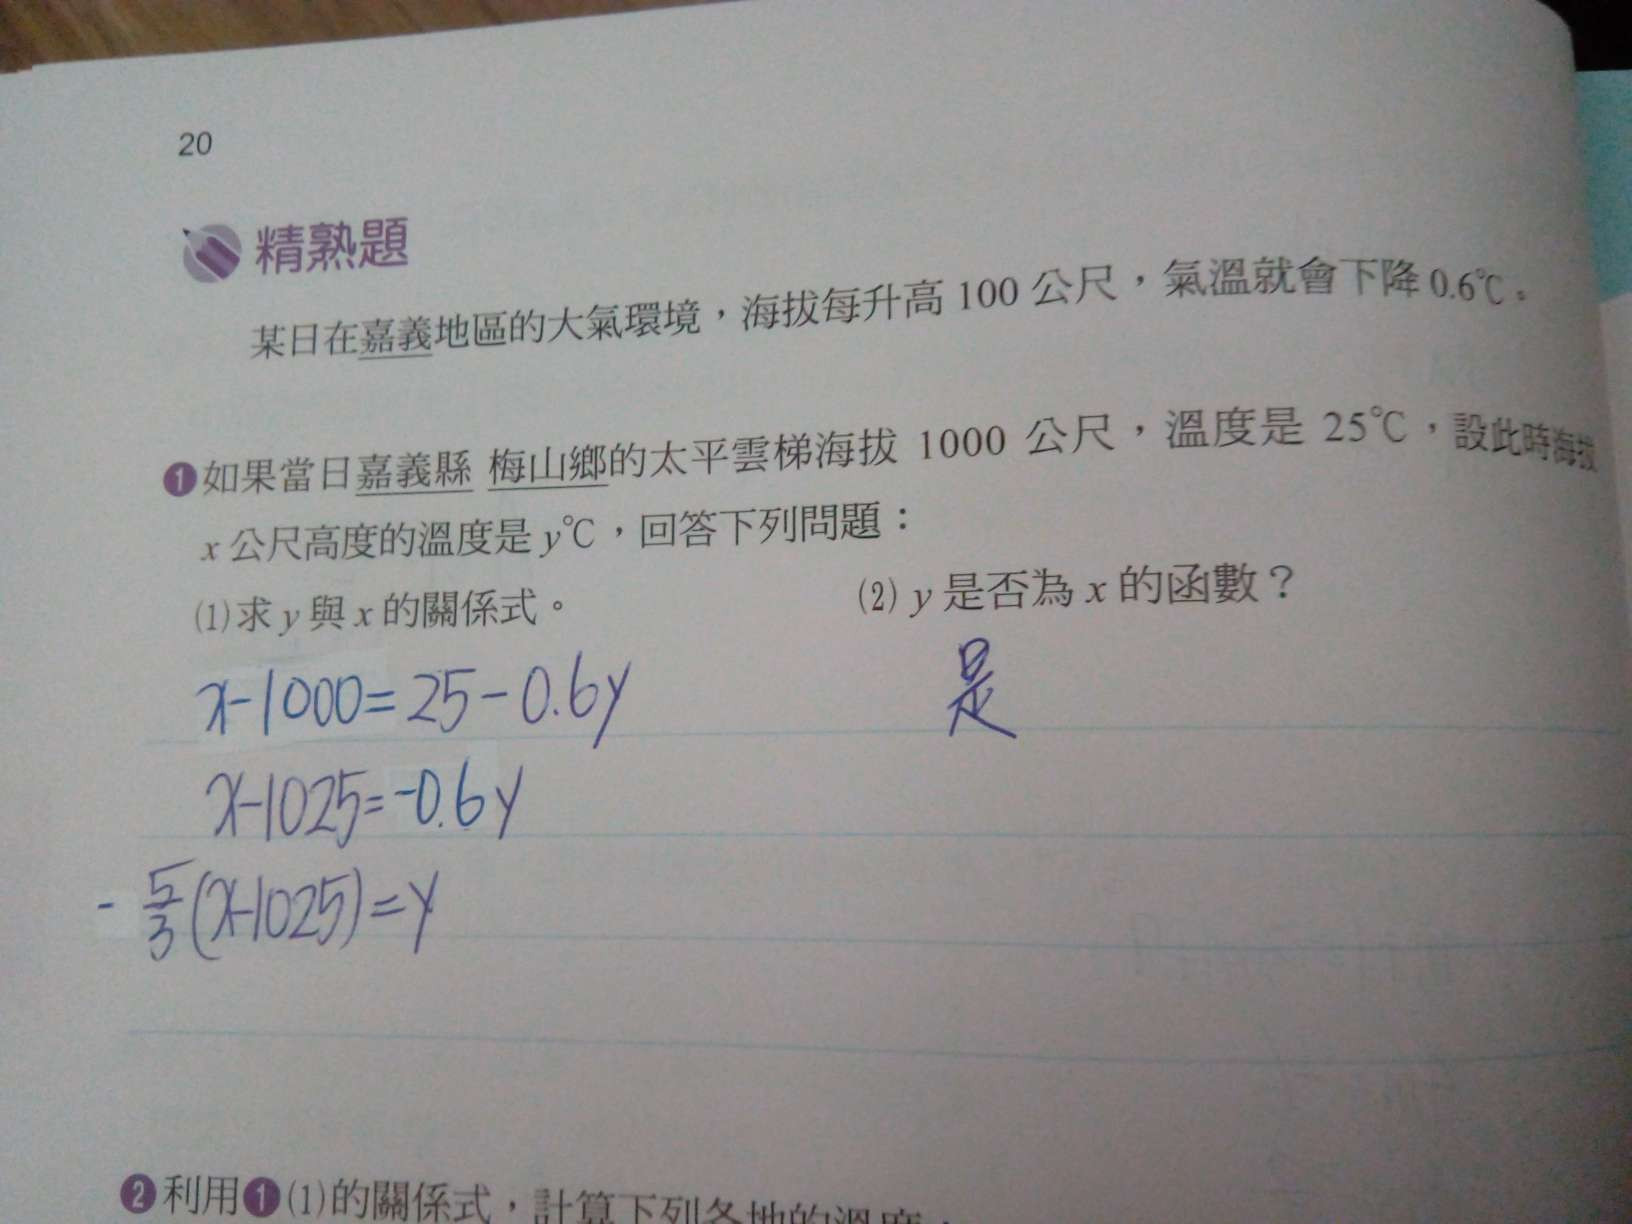 20
精熟題
某日在嘉義地區的大氣環境，海拔每升高 100 公尺，氣溫就會下降 0.6℃。
❶如果當日嘉義縣 梅山鄉的太平雲梯海拔 1000 公尺，溫度是 25℃，設此時海拔
x 公尺高度的溫度是 y℃，回答下列問題：
(1)求 y 與 x 的關係式。
(2) y 是否為 x 的函數？
x-1000=25-0.6y
是
x-1025=-0.6y
-5/3(x-1025)=y
❷利用❶(1)的關係式，計算下列各地的溫度：